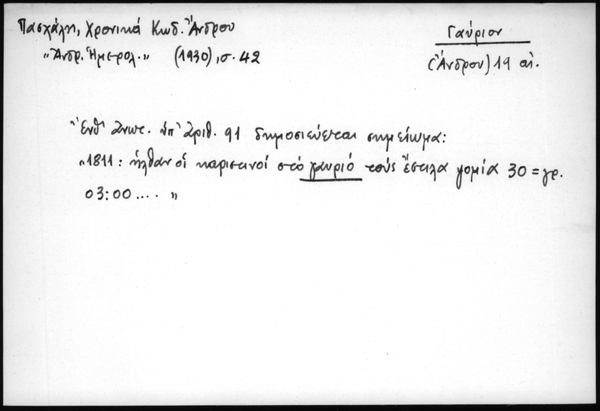 Πασχάλη, Χρονικά Κωδ. Ἄνδρου
"Ἀνδρ. Ἡμερολ." (1930), σ. 42
Γαύριον
(Ἄνδρου) 19 αἰ.
Ἔνθ' ἀνωτ. ὑπ' ἀριθ. 91 δημοσιεύεται σημείωμα:
"1811: ἦλθαν οἱ παρισινοί στό γαυριό τούς ἔστειλα γομία 30 = γρ.
03:00.... "